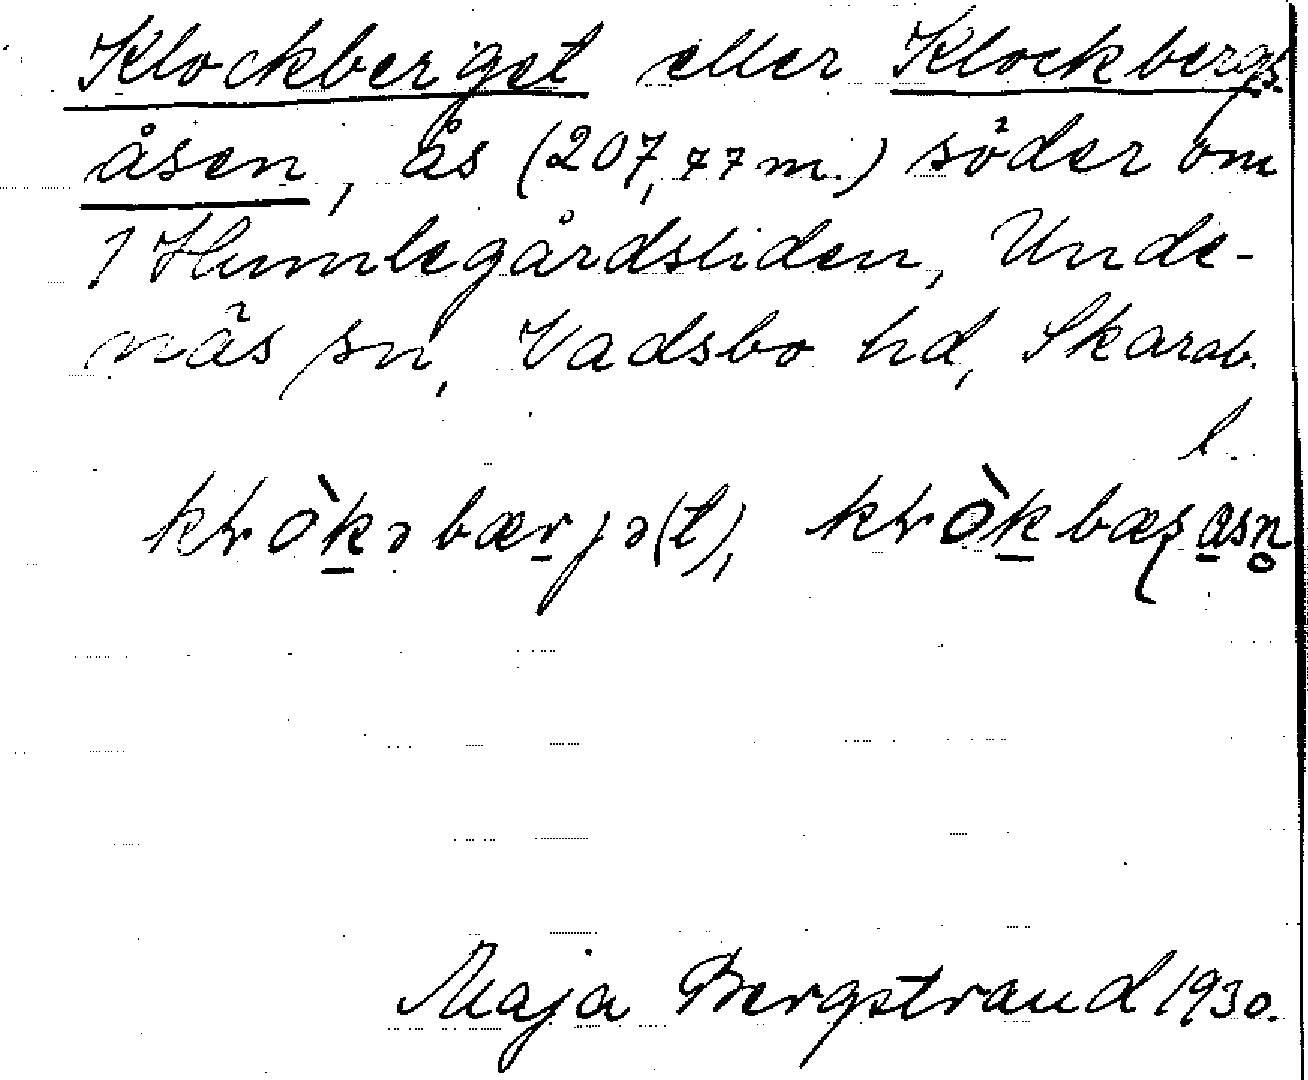 Klockberget eller Klockbergs
åsen, ås (207,77 m.) söder om
1 Humlegårdsliden, Unde-
näs sn, Vadsbo hd, Skarab.
l.
Maja Bergstrand 1930.